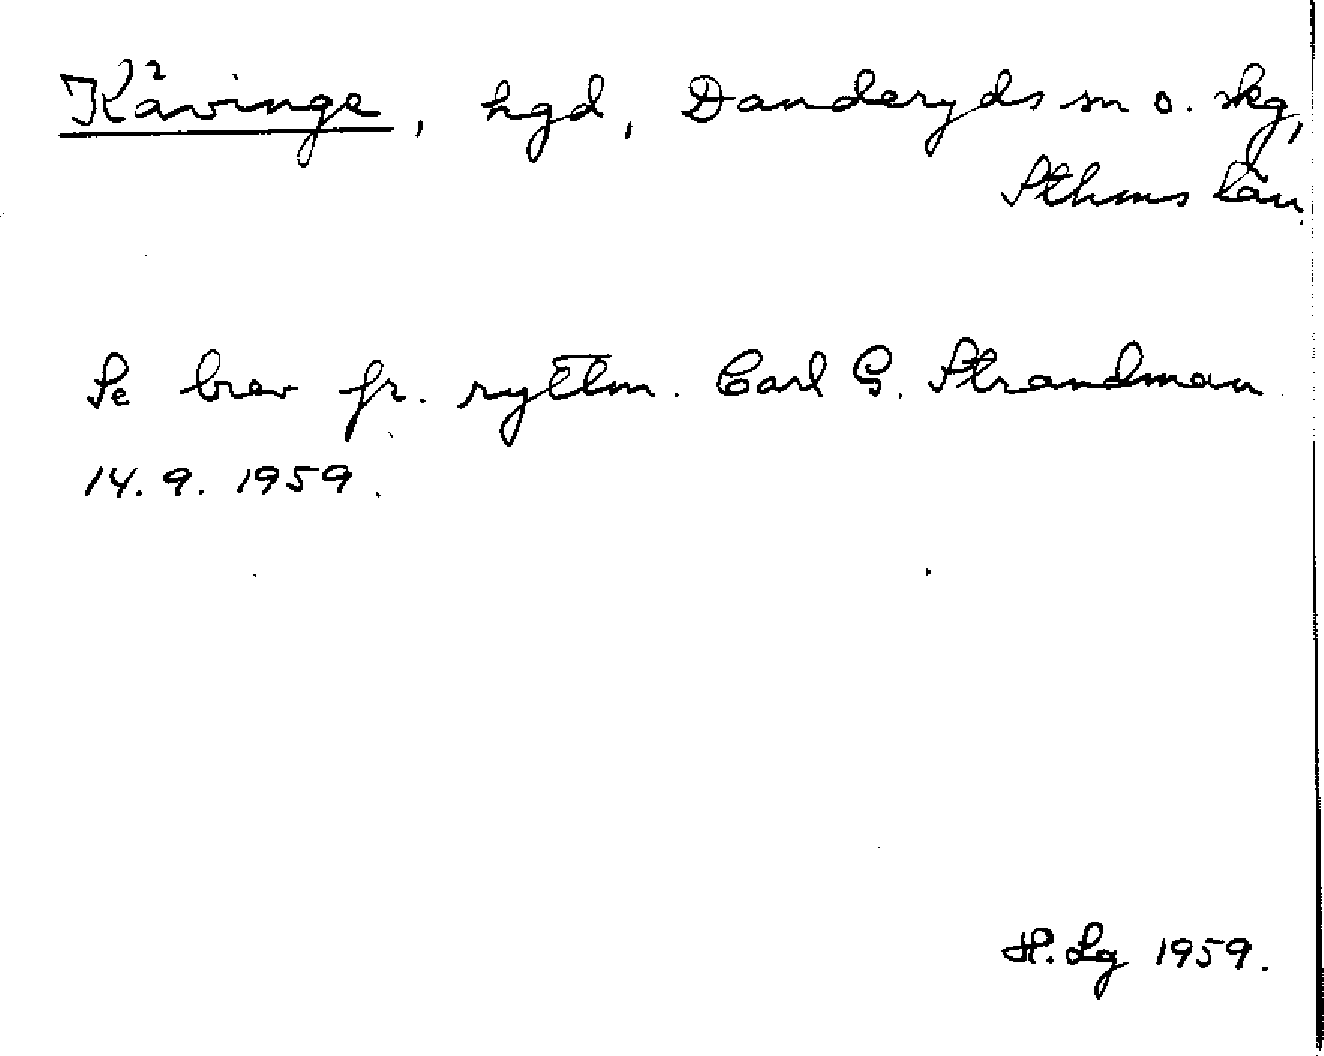 Kåvinge, hgd, Danderyds sn o. skg,
Sthms län.
Se brev fr. ryttm. Carl G. Strandman
14.9. 1959.
H. Lg 1959.